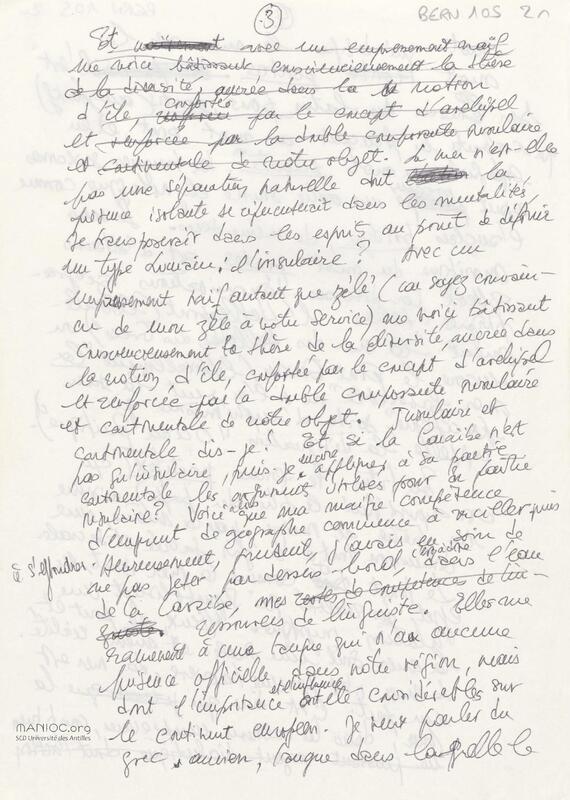 3
BERN 105 2n
Et avec un empressement naïf
me voici bâtissant consciencieusement la thèse
de la diversité, ancrée dans la notion
d'île, confortée par le concept d'archipel
et renforcée par la double composante insulaire
et continentale de notre objet. La mer n'est-elle
pas une séparation naturelle dont la
présence isolante se répercuterait dans les mentalités,
se transposerait dans les esprits au point de définir
un type humain : l'insulaire ? Avec un
empressement naïf autant que zélé (car soyez convain-
cu de mon zèle à votre service) me voici bâtissant
consciencieusement la thèse de la diversité, ancrée dans
la notion d'île, confortée par le concept d'archipel
et renforcée par la double composante insulaire
et continentale de notre objet. Insulaire et
continentale dis-je ! Et si la Caraïbe n'est
pas qu'insulaire, puis-je encore appliquer à sa partie
continentale les arguments utilisés pour sa partie
insulaire ? Voici que ma compétence
d'emprunt de géographe commence à vaciller puis
à s'effondrer. Heureusement, prudent, j'avais eu soin de
ne pas jeter par dessus-bord, dans l'eau
de la Caraïbe, mes restes de compétences de lin-
guiste. ressources de linguiste. Elles me
ramènent à une langue qui n'a aucune
présence officielle dans notre région, mais
dont l'importance et l'influence ont été considérables sur
le continent européen. Je veux parler du
grec ancien, langue dans laquelle le
MANIOC.org
SCD Université des Antilles